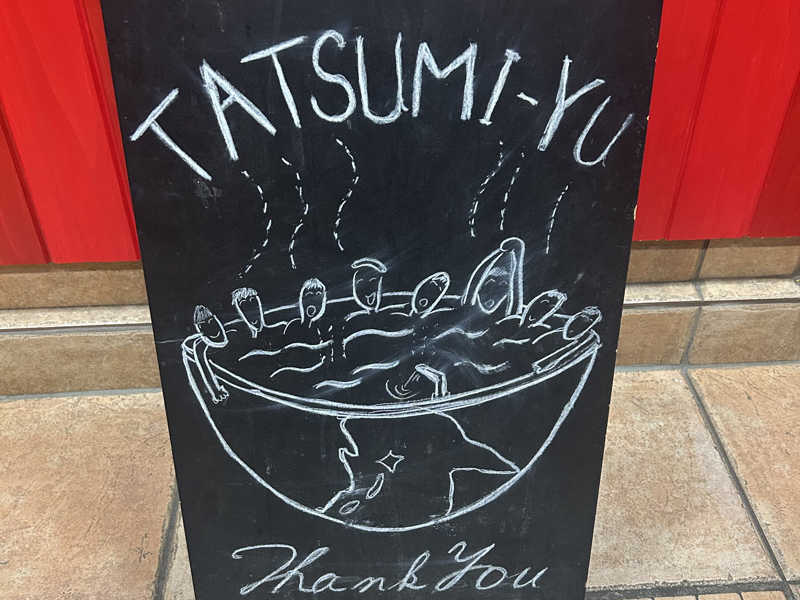 TATSUMI-YU
Thank You